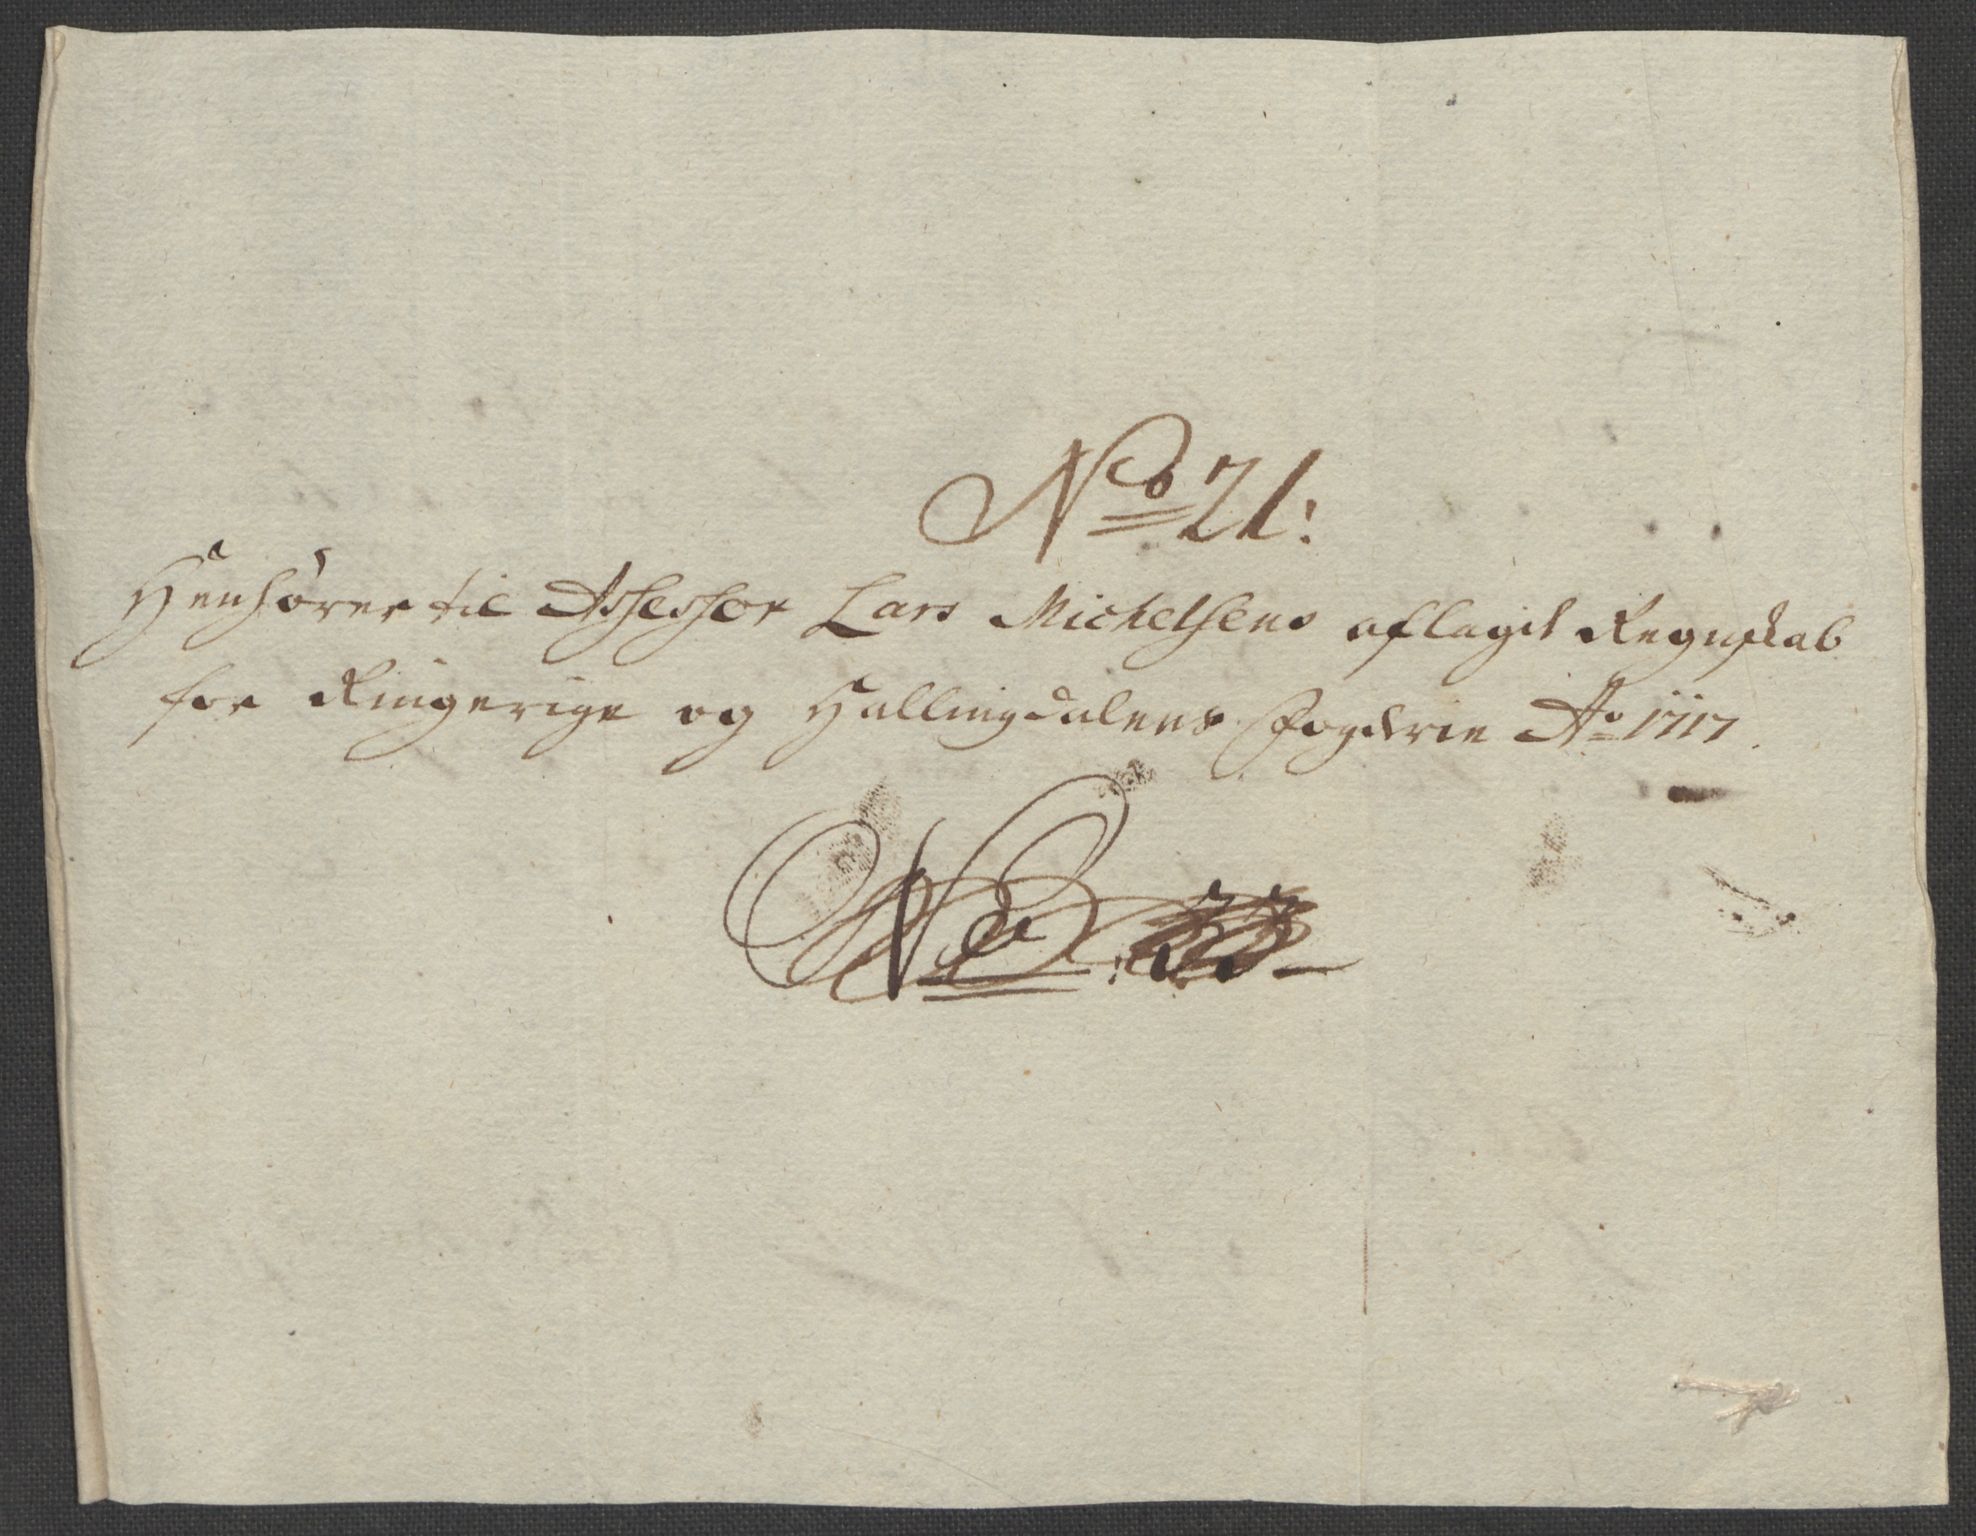 No 21:
Henhører til Assessor Lars Michelsens aflagde Regnskab
for Ringerige og Hallingdalens Fogderie Ao 1717.
No